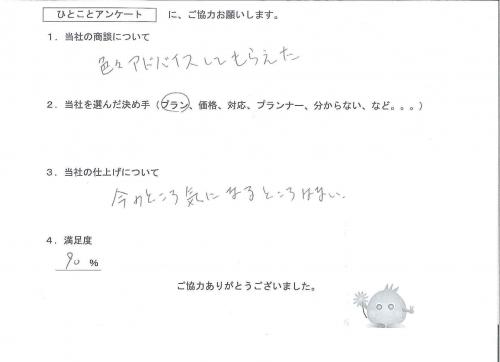 ひとことアンケート に、ご協力お願いします。
1．当社の商談について
色々アドバイスしてもらえた
2．当社を選んだ決め手（プラン、価格、対応、プランナー、分からない、など。。。）
3．当社の仕上げについて
今のところ気になるところはない。
4．満足度
90 %
ご協力ありがとうございました。